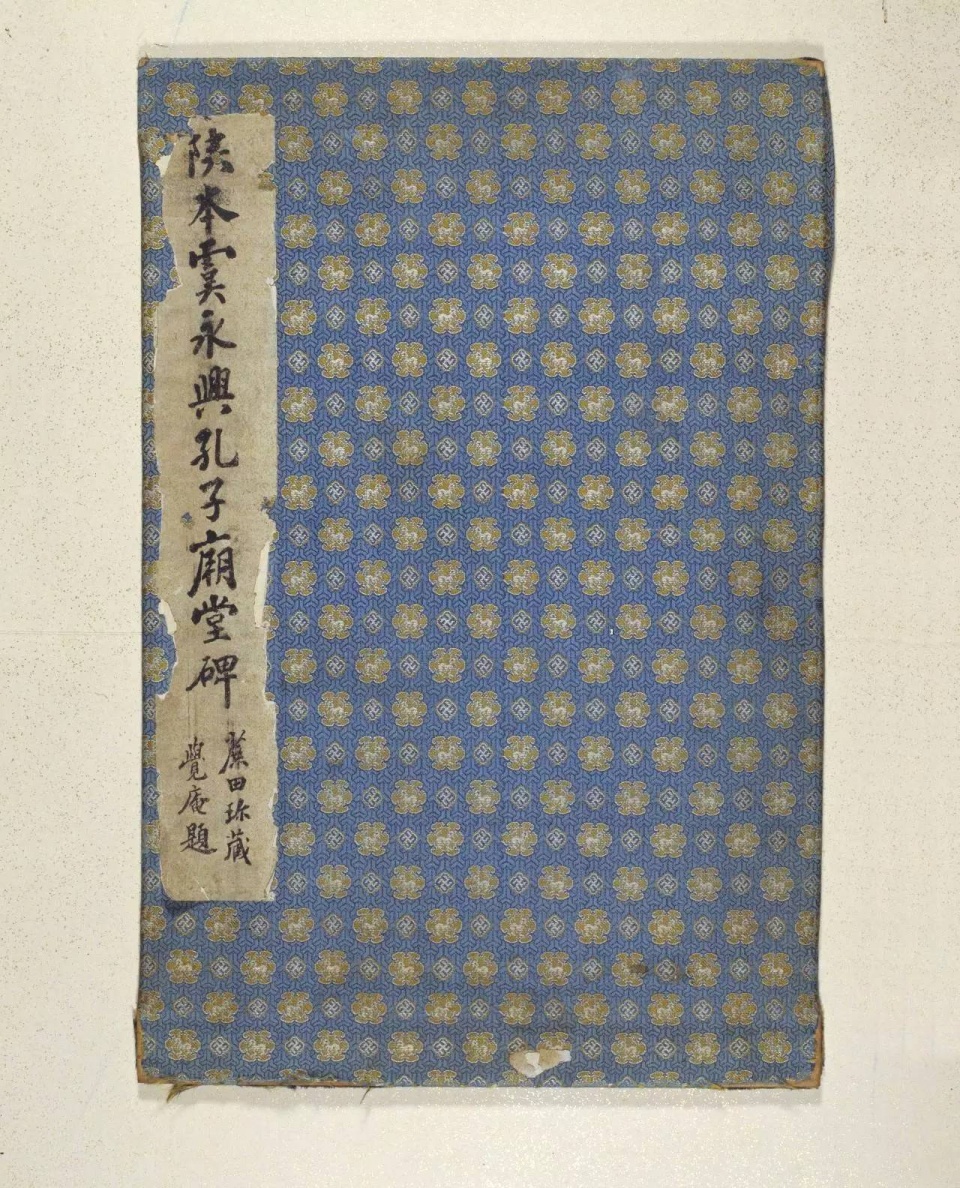 陝本虞永興孔子廟堂碑
蘪田珎藏
覺庵題